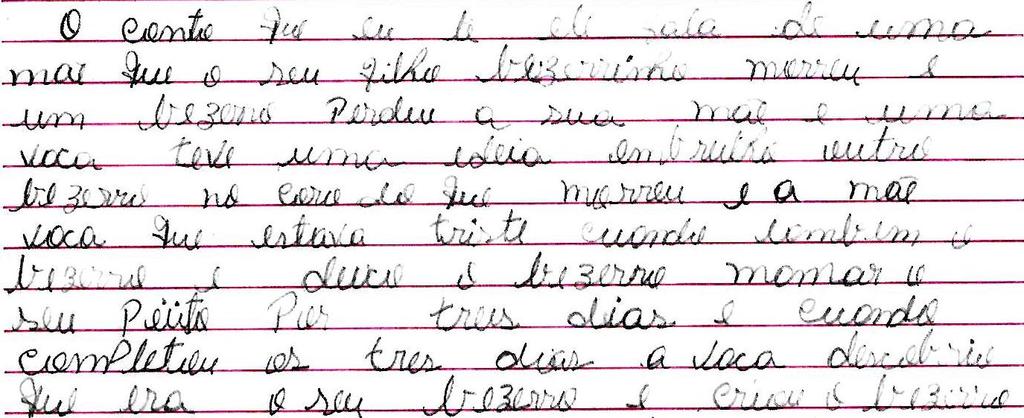 O conto que eu li ele fala de uma
mãe que o seu filho bezerrinho morreu e
um bezerro Perdeu a sua mãe e uma
voca teve uma ideia embrulho outro
bezerro no coro do que morreu e a mãe
voca que estava triste cuando lombem o
bezerro e deixo o bezerro momar o
seu Peiito Por tres dias e cuando
completou os tres dias a voca descobriu
que era o seu bezerro e criou o bezerro